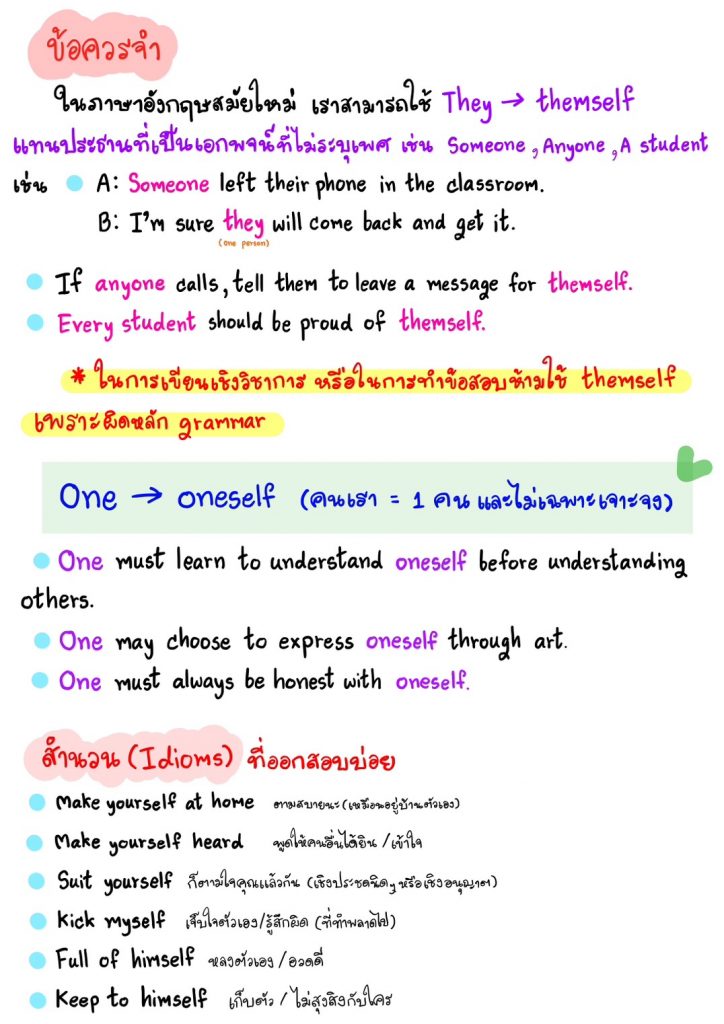 ข้อควรจำ
ในภาษาอังกฤษสมัยใหม่ เราสามารถใช้ They → themself
แทนประธานที่เป็นเอกพจน์ที่ไม่ระบุเพศ เช่น Someone, Anyone, A student
เช่น A: Someone left their phone in the classroom.
B: I'm sure they will come back and get it.
(one person)
If anyone calls, tell them to leave a message for themself.
Every student should be proud of themself.
* ในการเขียนเชิงวิชาการ หรือในการทำข้อสอบห้ามใช้ themself
เพราะผิดหลัก grammar
One → oneself (คนเรา = 1 คน และไม่เฉพาะเจาะจง)
One must learn to understand oneself before understanding
others.
One may choose to express oneself through art.
One must always be honest with oneself.
สำนวน (Idioms) ที่ออกสอบบ่อย
Make yourself at home ตามสบายนะ (เหมือนอยู่บ้านตัวเอง)
Make yourself heard พูดให้คนอื่นได้ยิน / เข้าใจ
Suit yourself ก็ตามใจคุณแล้วกัน (เชิงประชดนิดๆ หรือเชิงอนุญาต)
Kick myself เจ็บใจตัวเอง/รู้สึกผิด (ที่ทำพลาดไป)
Full of himself หลงตัวเอง / อวดดี
Keep to himself เก็บตัว / ไม่สุงสิงกับใคร